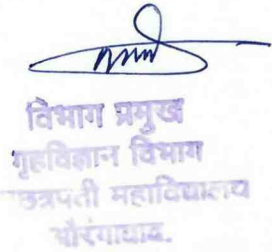 विभाग प्रमुख
गृहविज्ञान विभाग
छत्रपती महाविद्यालय
औरंगाबाद.